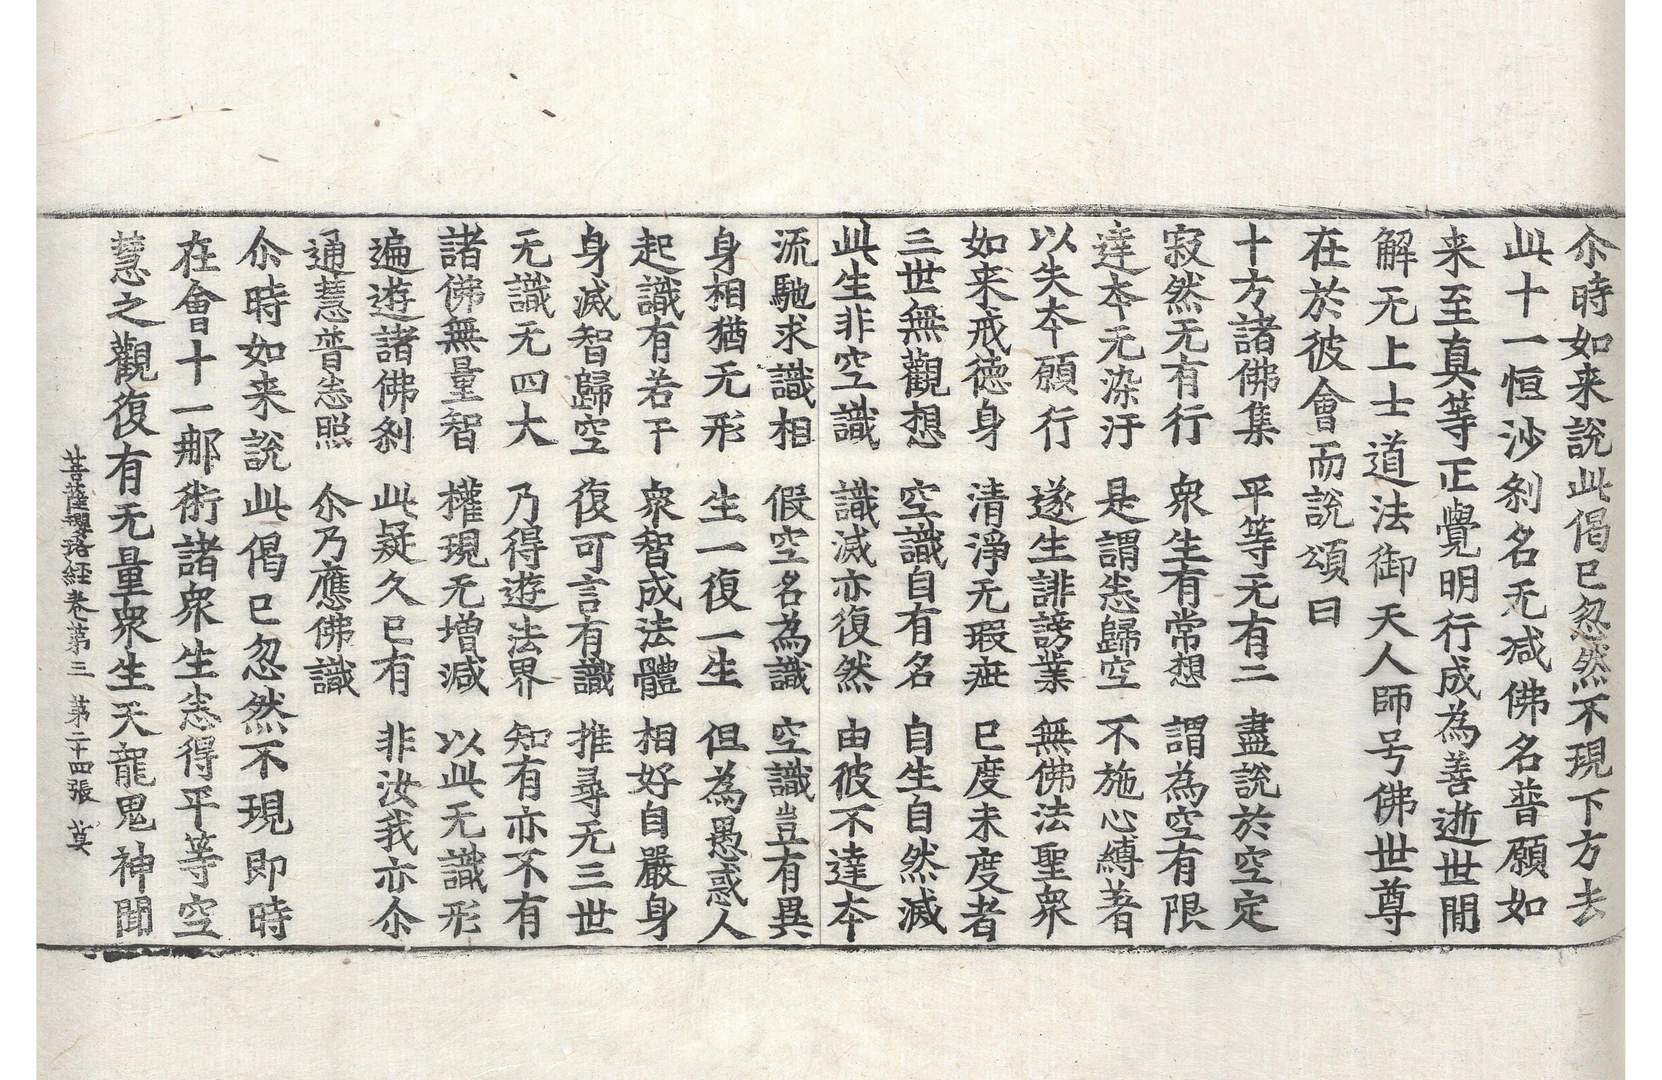 尒時如来說此偈已忽然不現下方去
此十一恒沙刹名无減佛名普願如
来至真等正覺明行成為善逝世間
解无上士道法御天人師号佛世尊
在於彼會而說頌曰
十方諸佛集　平等无有二　盡說於空定
寂然无有行　衆生有常想　謂為空有限
達夲无染汙　是謂悉歸空　不施心縛著
以失夲願行　遂生誹謗業　無佛法聖衆
如来戒德身　清淨无瑕疵　已度未度者
三世無觀想　空識自有名　自生自然滅
此生非空識　識滅亦復然　由彼不達夲
流馳求識相　假空名為識　空識豈有異
身相猶无形　生一復一生　但為愚惑人
起識有若干　衆智成法體　相好自嚴身
身滅智歸空　復可言有識　推尋无三世
无識无四大　乃得遊法界　知有亦不有
諸佛無量智　權現无增減　以此无識形
遍遊諸佛刹　此疑久已有　非汝我亦尒
通慧普悉照　尒乃應佛識
尒時如来說此偈已忽然不現即時
在會十一那術諸衆生悉得平等空
慧之觀復有无量衆生天龍鬼神聞
菩薩瓔珞経卷第三　第二十四張　莫